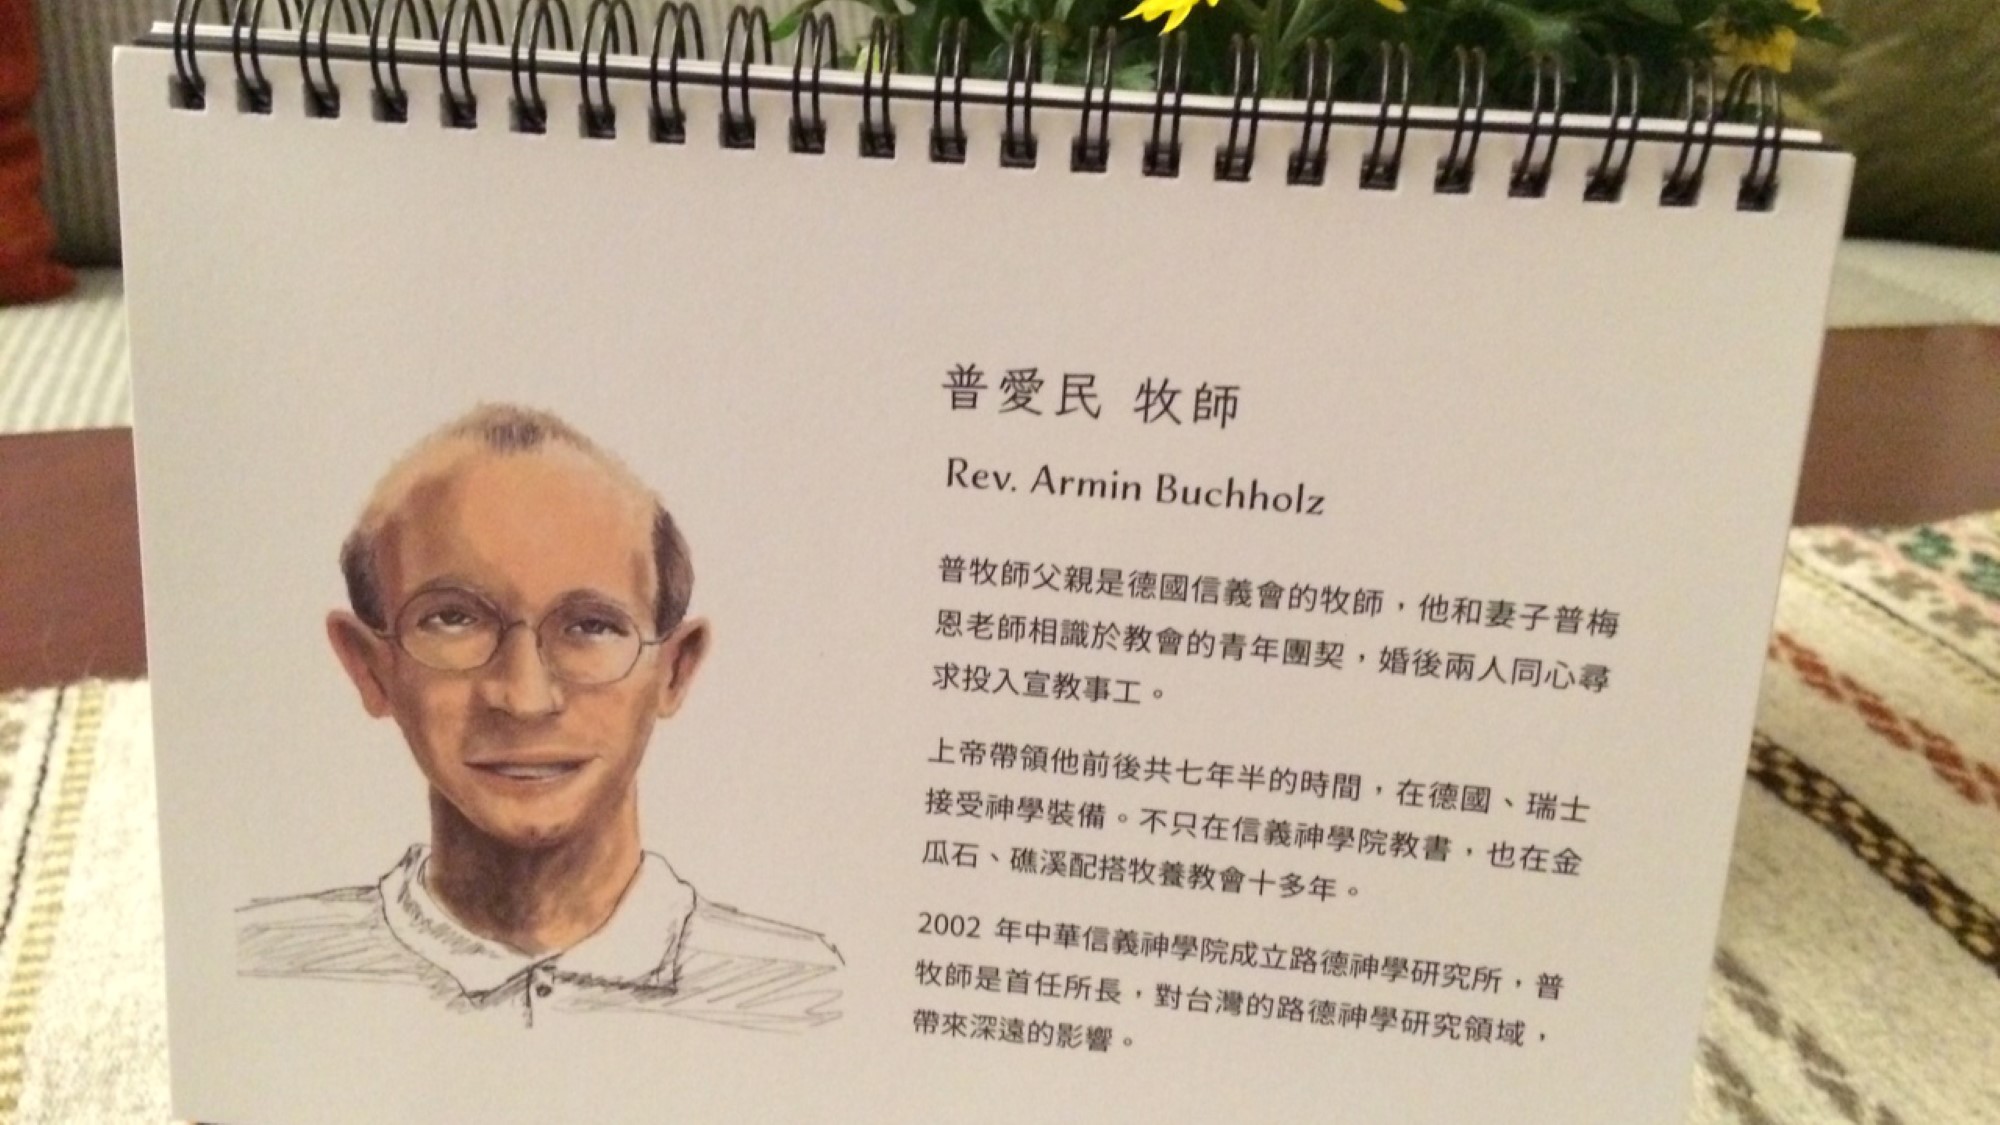 普愛民 牧師
Rev. Armin Buchholz
普牧師父親是德國信義會的牧師，他和妻子普梅
恩老師相識於教會的青年團契，婚後兩人同心尋
求投入宣教事工。
上帝帶領他前後共七年半的時間，在德國、瑞士
接受神學裝備。不只在信義神學院教書，也在金
瓜石、礁溪配搭牧養教會十多年。
2002 年中華信義神學院成立路德神學研究所，普
牧師是首任所長，對台灣的路德神學研究領域，
帶來深遠的影響。